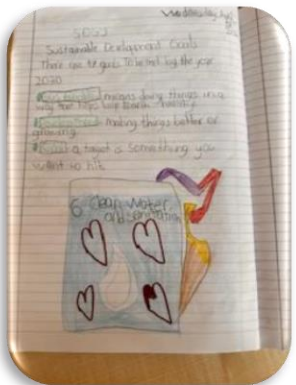 Wednesday
SDGS
Sustainable Development Goals
There are 17 goals To be met by the year
2030
means doing things in a
way that helps
making things better or
growing.
a target is something you
want to hit
6 Clean water
and sanitation